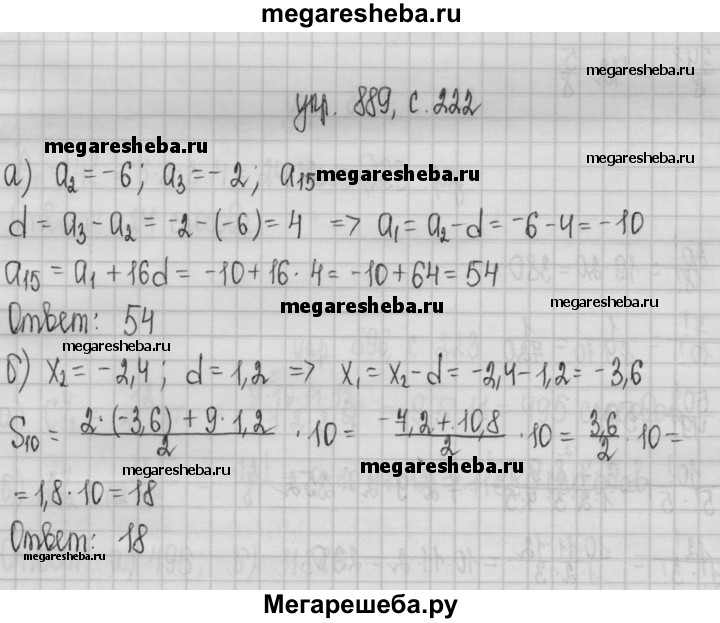 megaresheba.ru
megaresheba.ru
упр. 889, с. 222
megaresheba.ru
megaresheba.ru
а) a₂ = -6; a₃ = -2; a₁₅
megaresheba.ru
d = a₃ - a₂ = -2 - (-6) = 4 => a₁ = a₂ - d = -6 - 4 = -10
a₁₅ = a₁ + 16d = -10 + 16 · 4 = -10 + 64 = 54
megaresheba.ru
megaresheba.ru
Ответ: 54
megaresheba.ru
б) x₂ = -2,4; d = 1,2 => x₁ = x₂ - d = -2,4 - 1,2 = -3,6
S₁₀ = (2 · (-3,6) + 9 · 1,2)/2 · 10 = (-7,2 + 10,8)/2 · 10 = 3,6/2 · 10 =
megaresheba.ru
megaresheba.ru
= 1,8 · 10 = 18
Ответ: 18
megaresheba.ru
Мегарешеба.ру